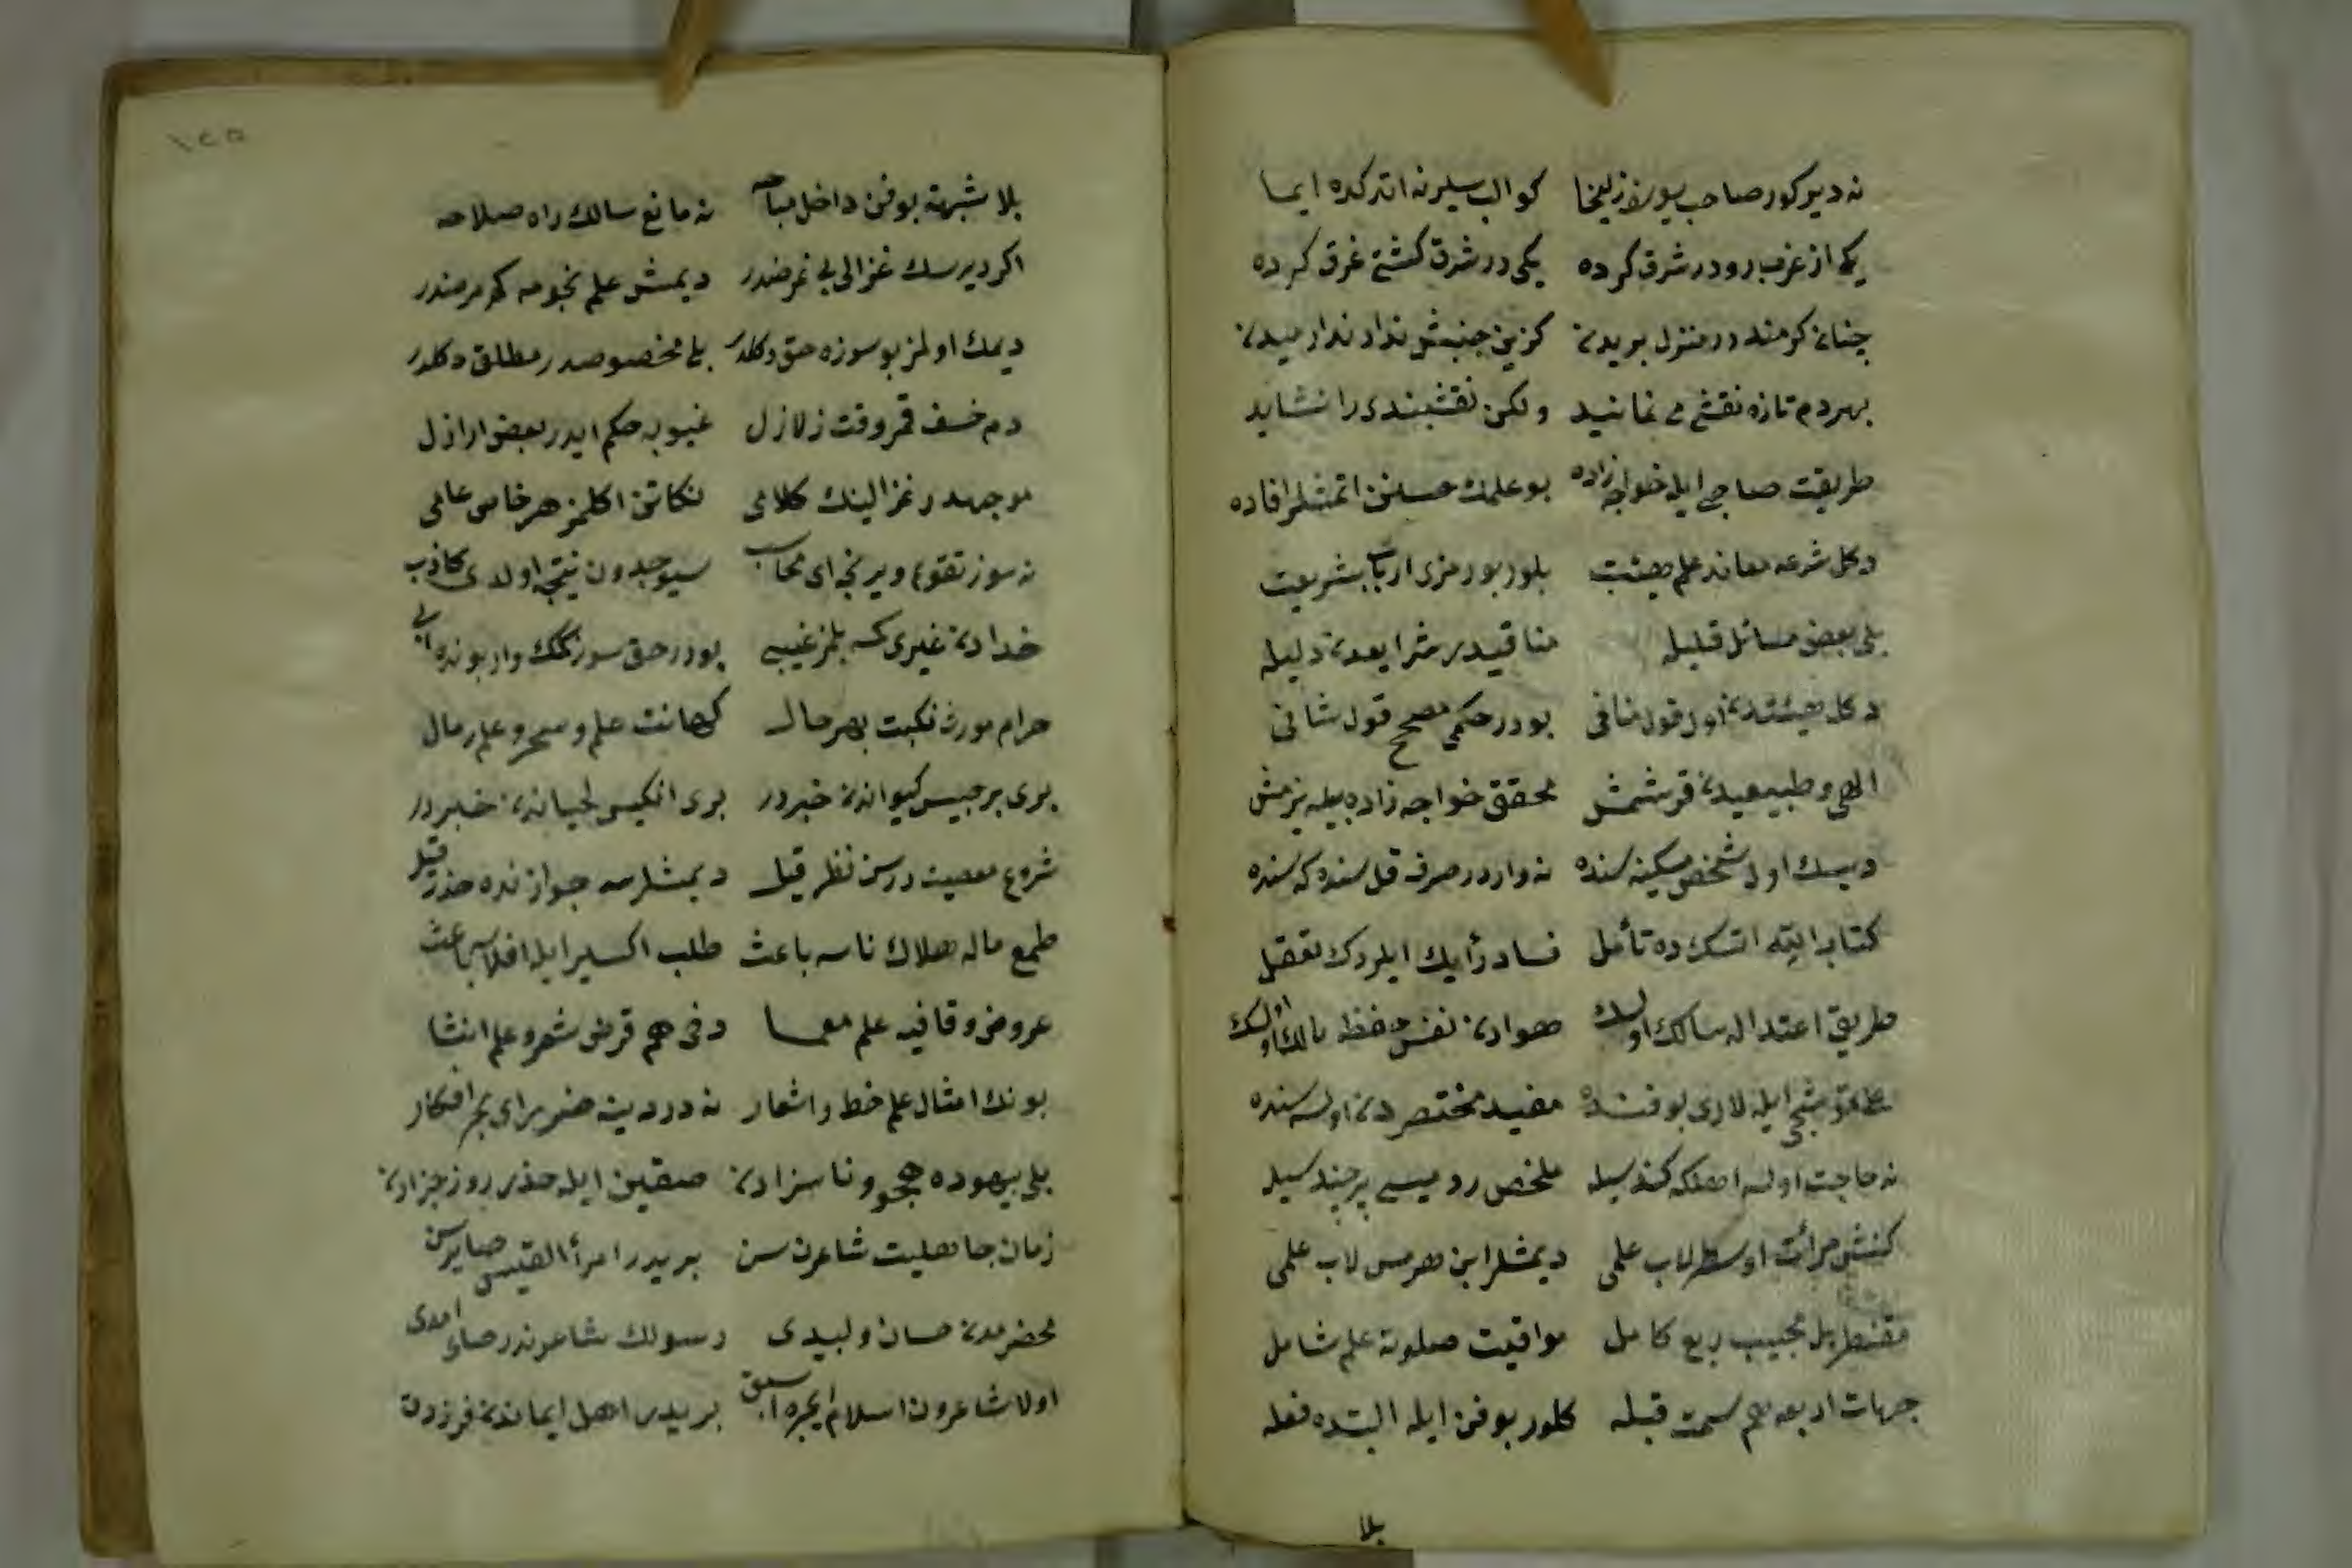 نه دير كور صاحب يوسف زليخا كواكب سيرنه اتدكده ايما
يكى از غرب رو در شرق كرده يكى در شرق كشتى غرق كرده
چنان گرمند در منزل بريدن كزين جنبش ندارد آرميدن
بهر دم تازه نقشى مى نمانيد ولكن نقشبندى را نشايد
طريقت صاحبى ايله خواجه زاده بو علمك حسنن اتمشلر افاده
دكل شرعه معاند علم هيئت بلور بو رمزى ارباب شريعت
بلى بعض مسائل قليله منافيدر شرايعدن دليله
دكل هيئتدن اول قول منافى بودر حكمى مصحح قول شافى
الهى و طبيعيدن قرشمش محقق خواجه زاده بيله يزمش
ديسك اول شخص مسكينه سنده نه واردر صرف قل سنده كه سنده
كتاب البته اتسك ده تأمل فساد رأيك ايلردك تعقل
طريق اعتداله سالك اولسك هوادن نفس حفظه مالك اولسك
على قوشجى ايله لارى بو فنده مفيد مختصردن اولسه سنده
نه حاجت اولسه اهلكه كند سيله ملخص روميسى برچند سيله
كنش مرآت اوسطرلاب علمى ديمشلر ابن هرمس لاب علمى
مقنطر بل مجيب ربع كامل مواقيت صلوته علم شامل
جهات اربعه هم سمت قبله كلور بو فن ايله البتده فعله
بلا
١٢٥
بلا شبهه بو فن داخل مباحه نه مانع سالك راه صلاحه
اكر ديرسك غزالى بى غرضدر ديمش علم نجومه كم مرضدر
ديمك اولمز بو سوزه حق دكلدر بلى مخصوصدر مطلق دكلدر
دم خسف قمر وقت زلازل غيوبه حكم ايدر بعض اراذل
موجهدر غزالينك كلامى نكاتن اكلمز هر خاص عامى
نه سوز تقويم ويرنجه اى محاسب سيوجدون نتيجه اولدى كاذب
خدادن غيرى كسه بلمز غيبى بودر حق سوز كمك وار بونده ريبى
حرام مورث نكبت بهر حال كهانت علم و سحر و علم رمال
برى برجيس كيواندن خبردر برى انكيس لحياندن خبردر
شروع معصيت درسن نظر قيل ديمشلرسه جوازنده حذر قيل
طمع ماله هلاك ناسه باعث طلب اكسير ايله افلاسه باعث
عروض و قافيه علم معما دخى هم قرض شعر و علم انشا
بونك امثال علم خط و اشعار نه در دينه ضرر اى بحر افكار
بلى بيهوده هجو و ناسزادن صقين ايله حذر روز جزادن
زمان جاهليت شاعرن سن بريدر امرأ القيس صايرسن
محضرمدن حسان و لبيدى رسولك شاعرندر صاى امدى
اولا شاعرون اسلام ايچره اسبق بريدر اهل ايماندن فرزدق